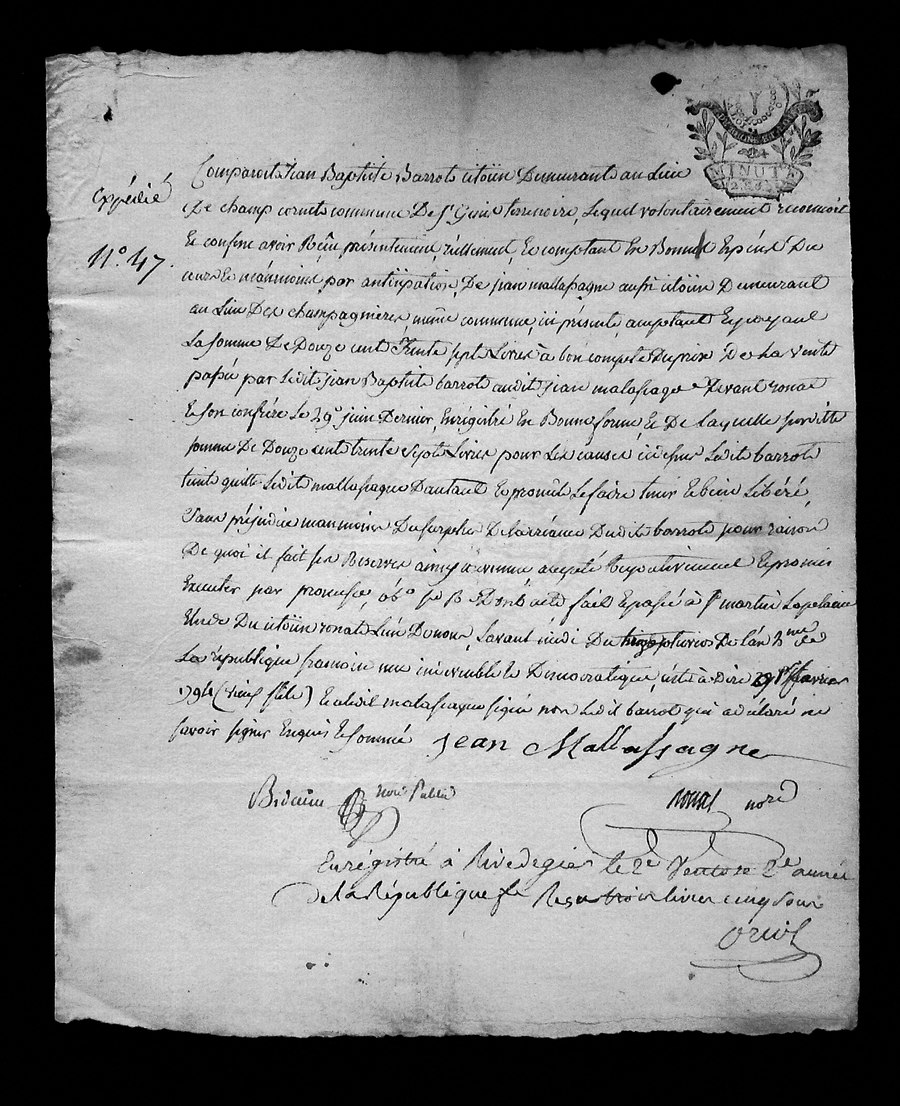 expédié
n.° 47.
MINUTE
Comparoit Jean Baptiste Barrot citoïen Demeurant au Lieu
De champ cornet commune De St Genis terrenoire, Lequel volontairement reconnoit
Et confesse avoir Reçu présentement, réellement, Et comptant En Bonnes Espèces Du
cours Et mêmmoins par anticipation, De jean mallassagne aussi citoïen Demeurant
au Lieu Des champagnières, même commune, ici présent, acceptant Et payant
La somme De Douze cent Trente sept Livres à bon compte Du prix De La vente
passée par Ledit jean Baptiste barrot audit jean malassagne Devant ronat
Et son confrère Le 29e juin Dernier, Enrégistré En Bonne forme, Et De laquelle susditte
somme De Douze cents trente Septs Livres pour Les causes icidessus Ledit barrot
tient quitte Ledit mallassagne D'autant Et promet Le faire tenir Et bien Libéré,
Sans préjudice néanmoins Du surplus De la créance Dudit barrot pour raison
De quoi il fait ses Reserves ainsy convenu accepté respectivement Et promis
Executer par promesse, ob.° sse R. Dont acte fait Et passé à St martin Laplaine
Etude Du citoïen ronat L'un De nous, L'avant midi Du pluvios De L'an 2me De
La république francoise une indivisible Et Democratique, c'est à Dire fevrier
1794 (vieux stile) Et a Ledit malassagne signé non Ledit barrot qui a déclaré ne
savoir signer Enquis Et sommé Jean Mallassagne
nore Public
ronat nore
Enrégistré à Rivedegier le 2e Ventose 2e année
de la République fse Reçu trois livres cinq sous